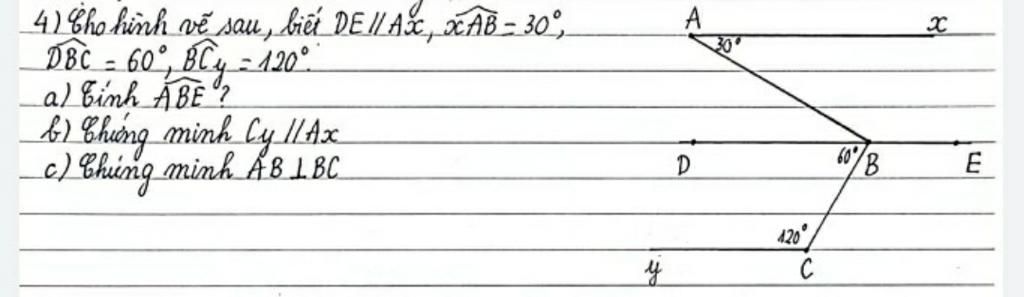 4) Cho hình vẽ sau, biết DE // Ax, xAB = 30°,
DBC = 60°, BCy = 120°.
a) Tính ABE ?
b) Chứng minh Cy // Ax
c) Chứng minh AB ⊥ BC
A x
30°
D 60° B E
120°
y C